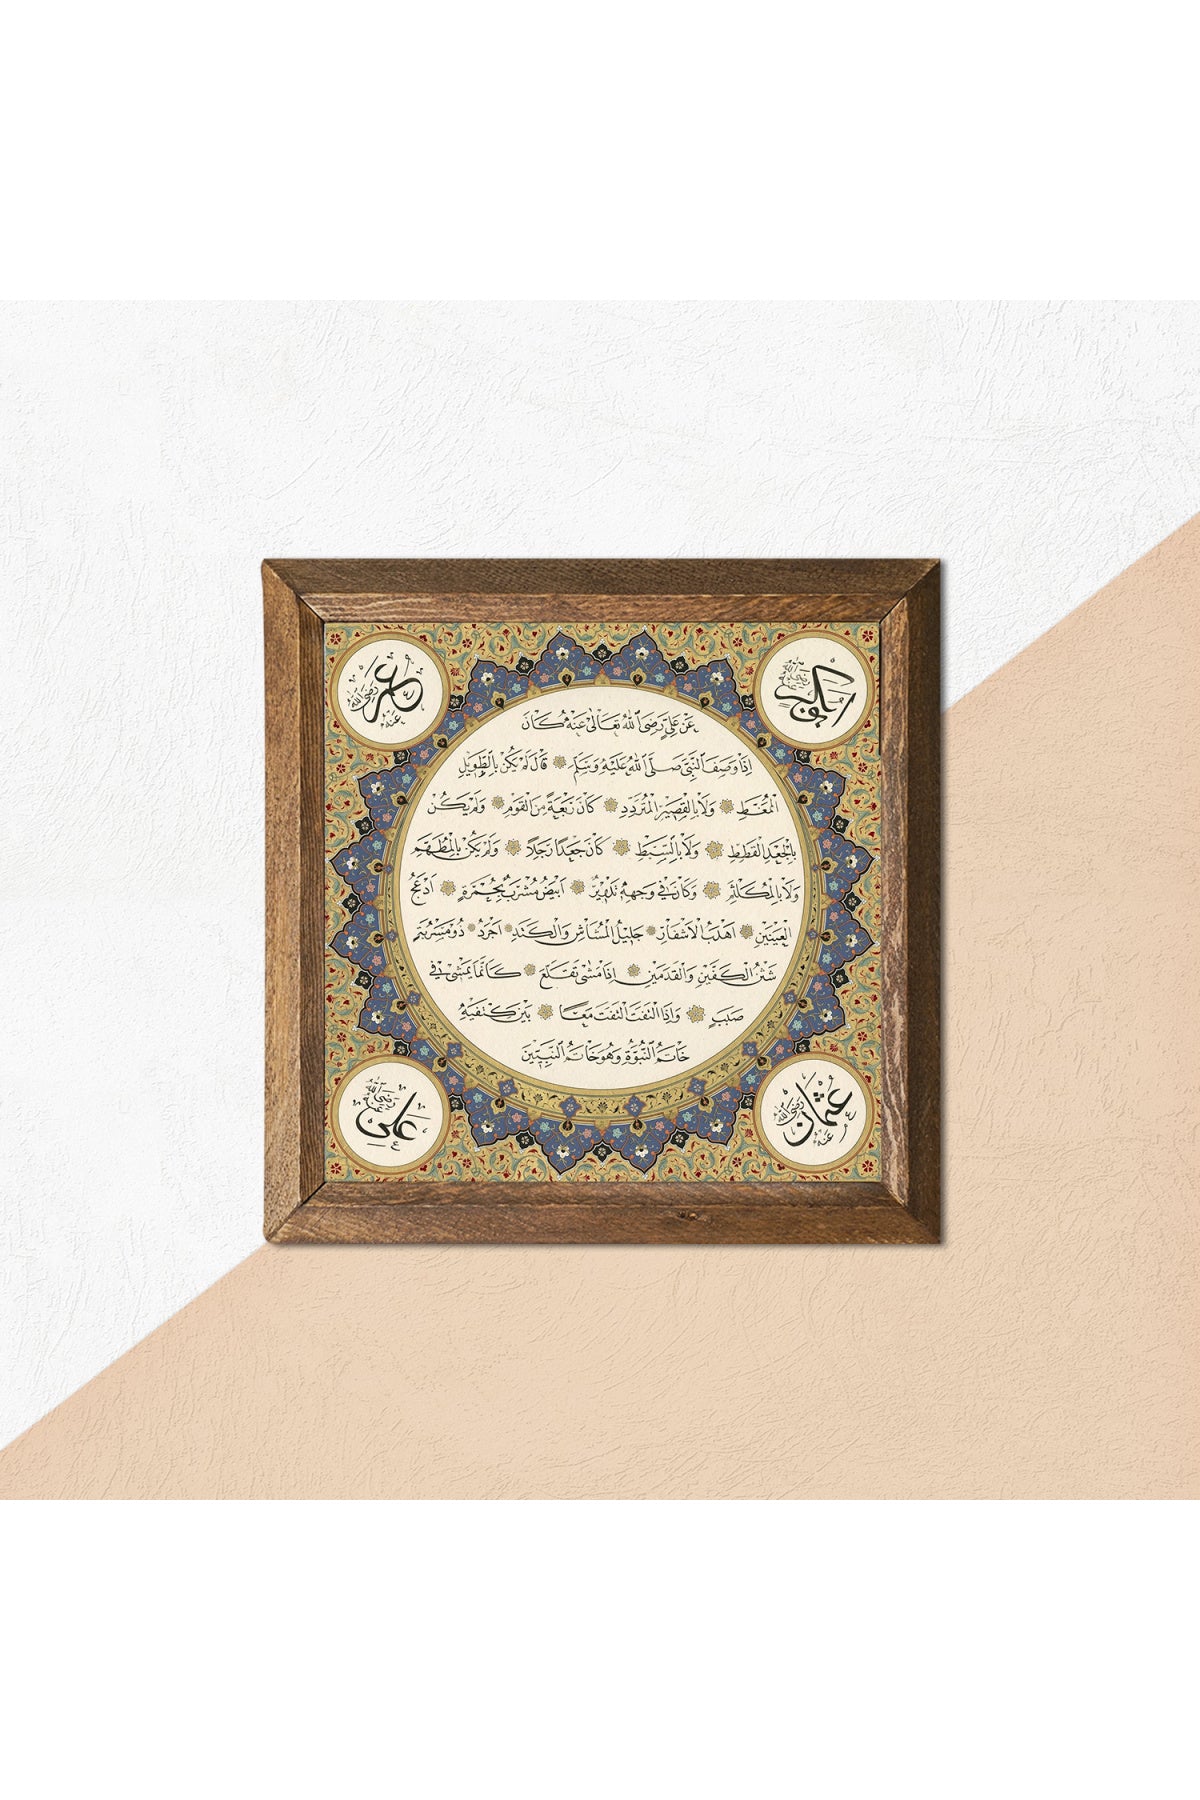 ابوبكر رضي الله عنه
عمر رضي الله عنه
عَنْ عَلِيٍّ رَضِيَ اللهُ تَعَالَى عَنْهُ كَانَ
اِذَا وَصَفَ النَّبِيَّ صَلَّى اللهُ عَلَيْهِ وَسَلَّمَ قَالَ لَمْ يَكُنْ بِالطَّوِيلِ
الْمُمَّغِطِ وَلَا بِالْقَصِيرِ الْمُتَرَدِّدِ كَانَ رَبْعَةً مِنَ الْقَوْمِ وَلَمْ يَكُنْ
بِالْجَعْدِ الْقَطَطِ وَلَا بِالسَّبِطِ كَانَ جَعْدًا رَجِلًا وَلَمْ يَكُنْ بِالْمُطَهَّمِ
وَلَا بِالْمُكَلْثَمِ وَكَانَ فِي وَجْهِهِ تَدْوِيرٌ اَبْيَضُ مُشْرَبٌ بِحُمْرَةٍ اَدْعَجُ
الْعَيْنَيْنِ اَهْدَبُ الْاَشْفَارِ جَلِيلُ الْمُشَاشِ وَالْكَتَدِ اَجْرَدُ ذُو مَسْرُبَةٍ
شَثْنُ الْكَفَّيْنِ وَالْقَدَمَيْنِ اِذَا مَشَى تَقَلَّعَ كَاَنَّمَا يَمْشِي فِي
صَبَبٍ وَاِذَا الْتَفَتَ الْتَفَتَ مَعًا بَيْنَ كَتِفَيْهِ
خَاتَمُ النُّبُوَّةِ وَهُوَ خَاتَمُ النَّبِيِّينَ
عثمان رضي الله عنه
علي رضي الله عنه